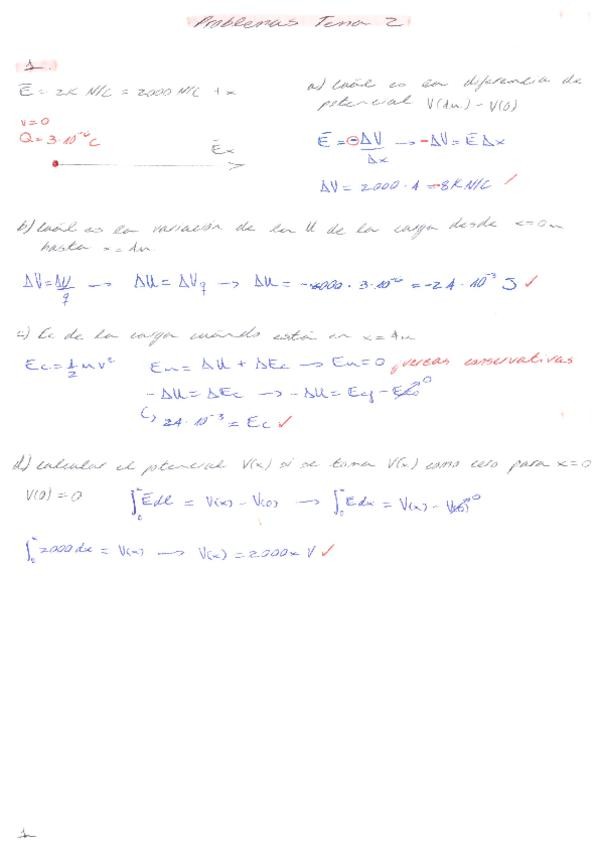 Problemas Tema 2
1.
E = 2K N/C = 2000 N/C +x
v=0
Q = 3·10⁻⁶ C
Ex
a) Cuál es la diferencia de
potencial V(4m) - V(0)
E = -ΔV/Δx → -ΔV = E Δx
ΔV = 2000 · 4 = -8K N/C ✓
b) Cuál es la variación de la U de la carga desde x=0m
hasta x=4m
ΔV = ΔU/q → ΔU = ΔVq → ΔU = -8000 · 3·10⁻⁶ = -24·10⁻³ J ✓
c) Ec de la carga cuando está en x=4m
Ec = 1/2 m v² Em = ΔU + ΔEc → Em = 0 fuerzas conservativas
-ΔU = ΔEc → -ΔU = Ecf - Eco⁰
24·10⁻³ = Ec ✓
d) calcular el potencial V(x) si se toma V(x) como cero para x=0
V(0) = 0 ∫₀ˣ Edl = V(x) - V(0) → ∫₀ˣ Edx = V(x) - V(0)⁰
∫₀ˣ 2000 dx = V(x) → V(x) = 2000x V ✓